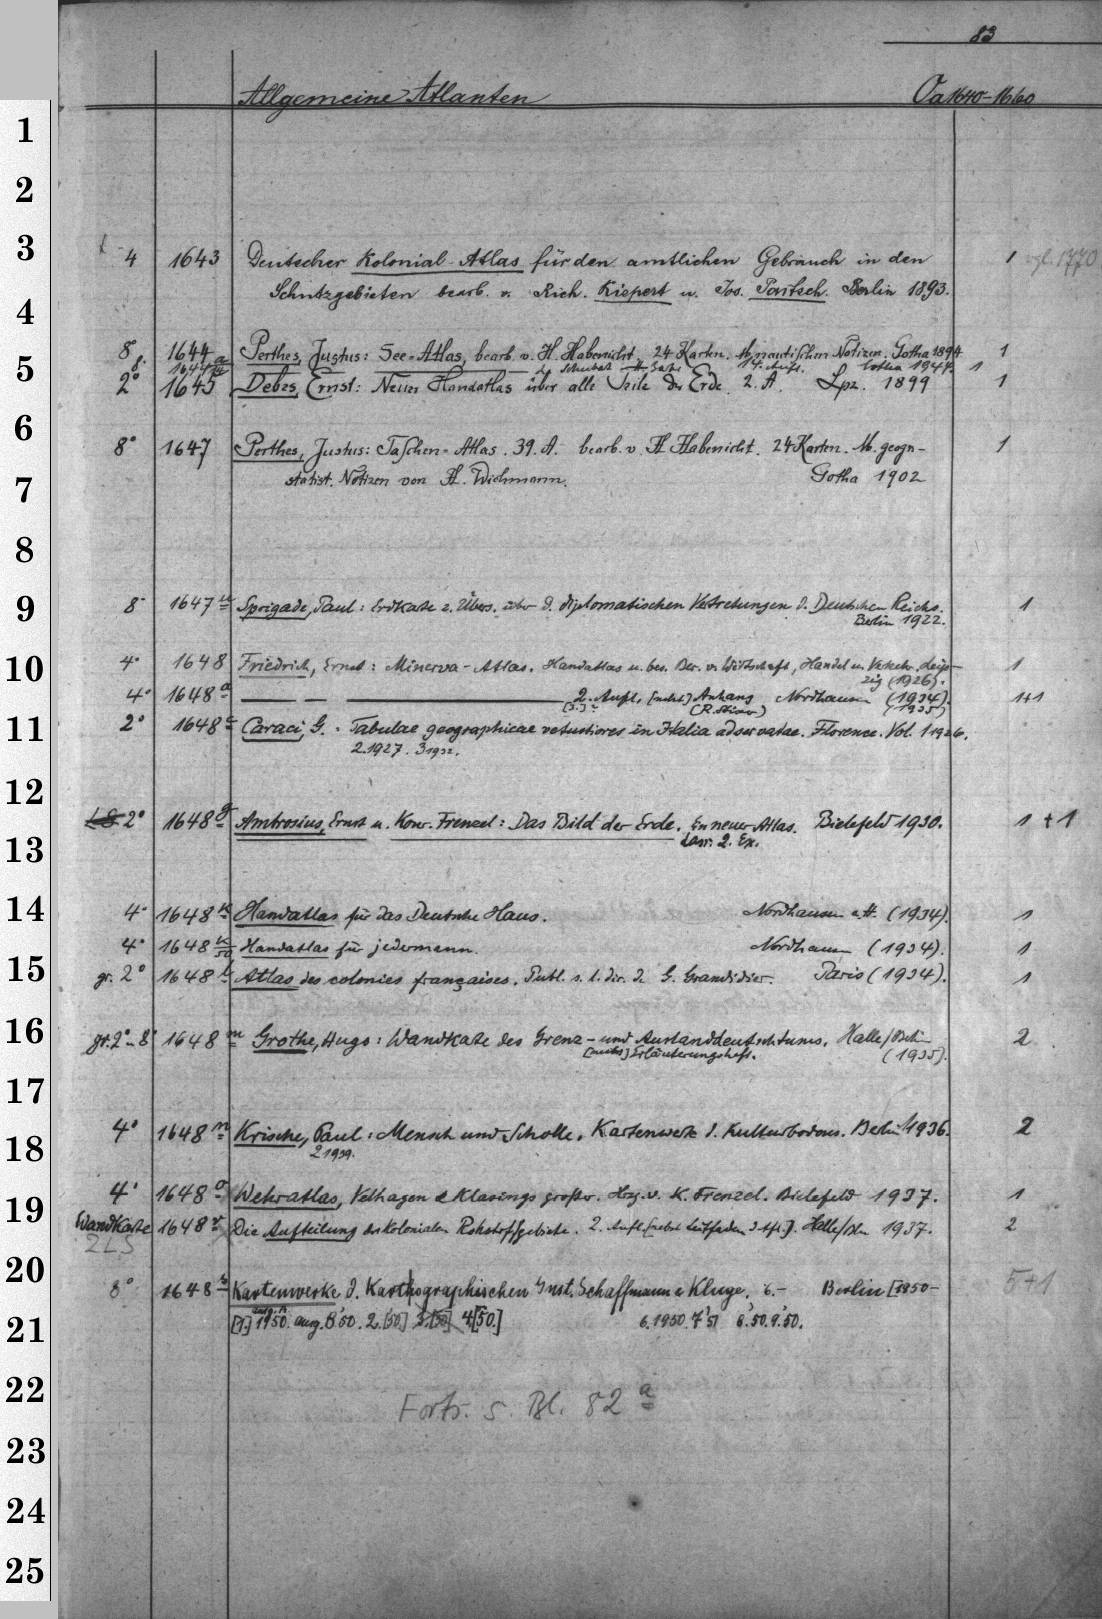 83
Allgemeine Atlanten Oa 1640-1660
1
2
3
4 1643 Deutscher Kolonial-Atlas für den amtlichen Gebrauch in den 1 vgl. 1770
Schutzgebieten bearb. v. Rich. Kiepert u. Jos. Partsch. Berlin 1893.
4
8° 1644 Perthes, Justus: See-Atlas, bearb. v. H. Habenicht. 24 Karten. M. nautischen Notizen. Gotha 1894 1
8° 1644 a 14. Aufl. Gotha 1944. 1
5
2° 1645 Debes, Ernst: Neuer Handatlas über alle Teile der Erde. 2. A. Lpz. 1899 1
6
8° 1647 Perthes, Justus: Taschen-Atlas. 39. A. bearb. v. H. Habenicht. 24 Karten. M. geogr-
statist. Notizen von H. Wichmann. Gotha 1902 1
7
8
9
8° 1647 a Sprigade, Paul: Erdkarte z. Übers. über d. diplomatischen Vertretungen d. Deutschen Reichs. 1
Berlin 1922.
10
4° 1648 Friedrich, Ernst: Minerva-Atlas. Handatlas u. bes. Ber. v. Wirtschaft, Handel u. Verkehr. Leip- 1
zig (1926).
4° 1648 a — — — 2. Aufl. [nebst] Anhang Nordhausen (1934). 1+1
(1935)
11
2° 1648 c Caraci, G.: Tabulae geographicae vetustiores in Italia adservatae. Florence. Vol. 1 1926.
2 1927. 3 1932.
12
2° 1648 g Ambrosius, Ernst u. Konr. Frenzel: Das Bild der Erde. Ein neuer Atlas. Bielefeld 1930. 1 + 1
Dass: 2. Ex.
13
14
4° 1648 k Handatlas für das Deutsche Haus. Nordhausen a. H. (1934). 1
4° 1648 k/50 Handatlas für jedermann. Nordhausen (1934). 1
15
gr. 2° 1648 l Atlas des colonies françaises. Publ. s. l. dir. d. G. Grandidier. Paris (1934). 1
16
gr. 2° u. 8° 1648 m Grothe, Hugo: Wandkarte des Grenz- und Auslanddeutschtums. Halle/Berlin 2
[nebst] Erläuterungsheft. (1935).
17
4° 1648 n Krische, Paul: Mensch und Scholle. Kartenwerk d. Kulturbodens. Berlin 1936. 2
2 1939.
18
4° 1648 o Wehratlas, Velhagen & Klasings großer. Hrg. v. K. Frenzel. Bielefeld 1937. 1
19
Wandkarte 1648 r Die Aufteilung der kolonialen Rohstoffgebiete. 2. Aufl. [nebst Leitfaden Halle/Bln 1937. 2
2LS
20
8° 1648 s Kartenwerke d. Karthographischen Inst. Schaffmann & Kluge. 6.- Berlin [1950- 5+1
[1.] 1950. aug. 8'50. 2.[50.] 3.[50] 4[50.] 6.1950. 7'51 8'50. 9'50.
21
22
Forts. s. Bl. 82 a
23
24
25